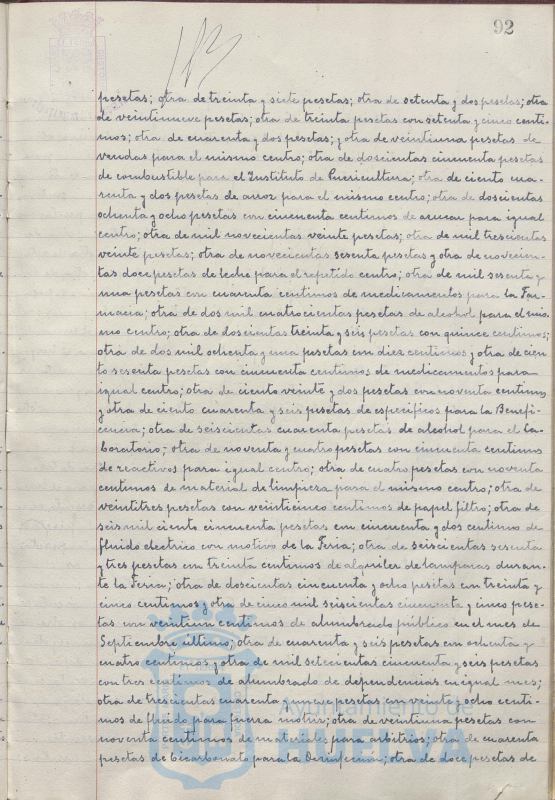 92
pesetas; otra de treinta y siete pesetas; otra de setenta y dos pesetas; otra
de veintinueve pesetas; otra de treinta pesetas con setenta y cinco centi-
mos; otra de cuarenta y dos pesetas; y otra de veintiuna pesetas de
vendas para el mismo centro; otra de doscientas cincuenta pesetas
de combustible para el Instituto de Puericultura; otra de ciento cua-
renta y dos pesetas de arroz para el mismo centro; otra de doscientas
ochenta y ocho pesetas con cincuenta centimos de azucar para igual
centro; otra de mil novecientas veinte pesetas; otra de mil trescientas
veinte pesetas; otra de novecientas sesenta pesetas y otra de novecien-
tas doce pesetas de leche para el repetido centro; otra de mil sesenta y
una pesetas con cuarenta centimos de medicamentos para la Far-
macia; otra de dos mil cuatrocientas pesetas de alcohol para el mis-
mo centro; otra de doscientas treinta y seis pesetas con quince centimos;
otra de dos mil ochenta y una pesetas con diez centimos y otra de cien-
to sesenta pesetas con cincuenta centimos de medicamentos para
igual centro; otra de ciento veinte y dos pesetas con noventa centimos
y otra de ciento cuarenta y seis pesetas de especificos para la Benefi-
cencia; otra de seiscientas cuarenta pesetas de alcohol para el La-
boratorio; otra de noventa y cuatro pesetas con cincuenta centimos
de reactivos para igual centro; otra de cuatro pesetas con noventa
centimos de material de limpieza para el mismo centro; otra de
veintitres pesetas con veinticinco centimos de papel filtro; otra de
seis mil ciento cincuenta pesetas con cincuenta y dos centimos de
fluido electrico con motivo de la Feria; otra de seiscientas sesenta
y tres pesetas con treinta centimos de alquiler de lamparas duran-
te la Feria; otra de doscientas cincuenta y ocho pesetas con treinta y
cinco centimos y otra de cinco mil seiscientas cincuenta y cinco pese-
tas con veintiun centimos de alumbrado público en el mes de
Septiembre último; otra de cuarenta y seis pesetas con ochenta y
cuatro centimos y otra de mil setecientas cincuenta y seis pesetas
con tres centimos de alumbrado de dependencias en igual mes;
otra de trescientas cuarenta y nueve pesetas con veinte y ocho centi-
mos de fluido para fuerza motriz; otra de veintiuna pesetas con
noventa centimos de materiales para arbitrios; otra de cuarenta
pesetas de bicarbonato para la Desinfeccion; otra de doce pesetas de
Ayuntamiento de
HUELVA